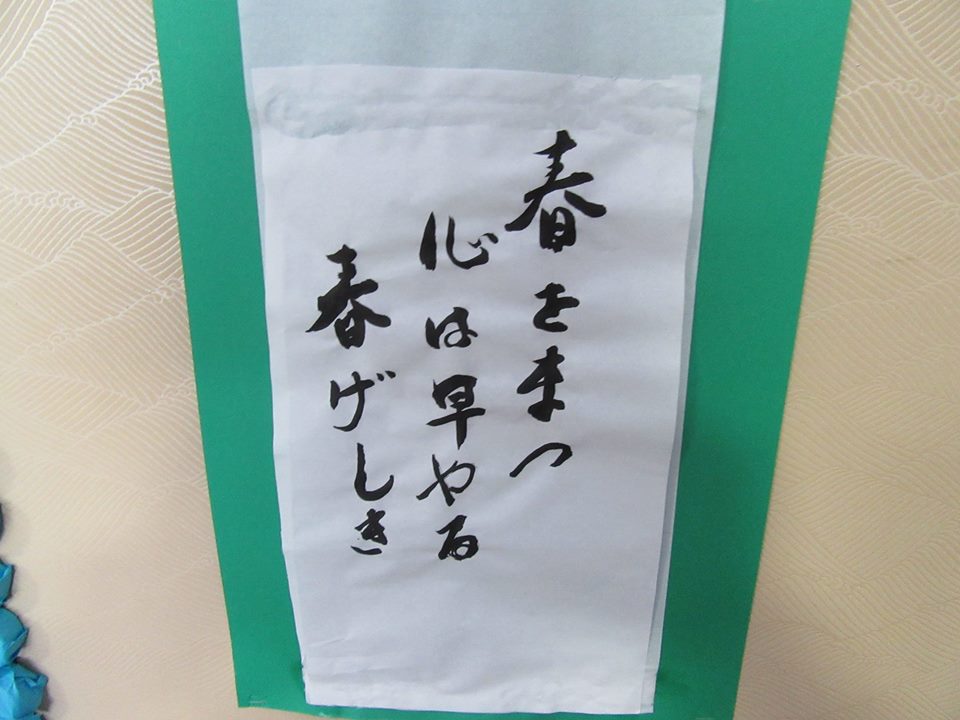 春をまつ
心は早やる
春げしき